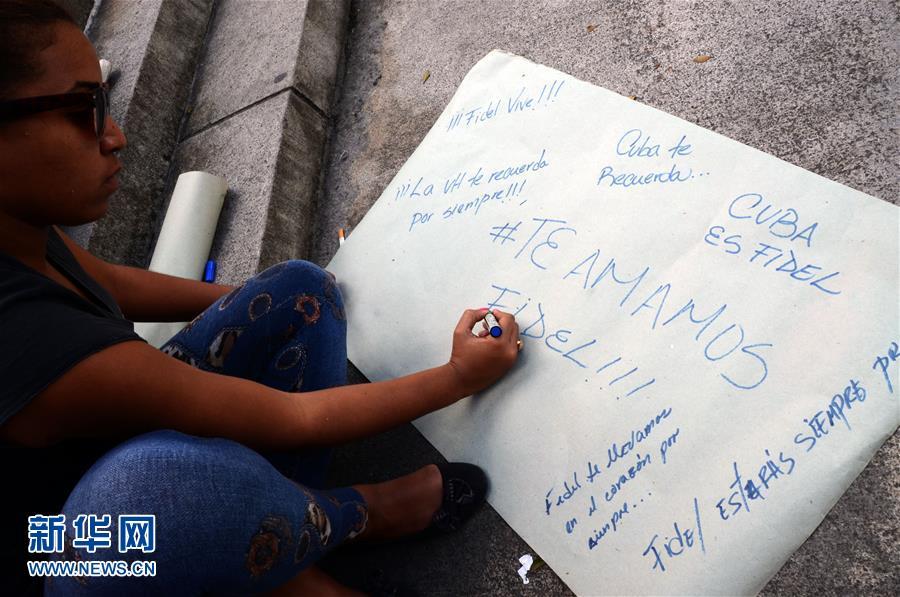 ¡¡¡Fidel Vive!!!
Cuba te
Recuerda...
¡¡¡La UH te recuerda
por siempre!!!
CUBA
ES FIDEL
#TE AMAMOS
FIDEL!!!
Fidel te llevamos
en el corazón por
siempre...
Fidel ESTARÁS SIEMPRE PR
新华网
WWW.NEWS.CN